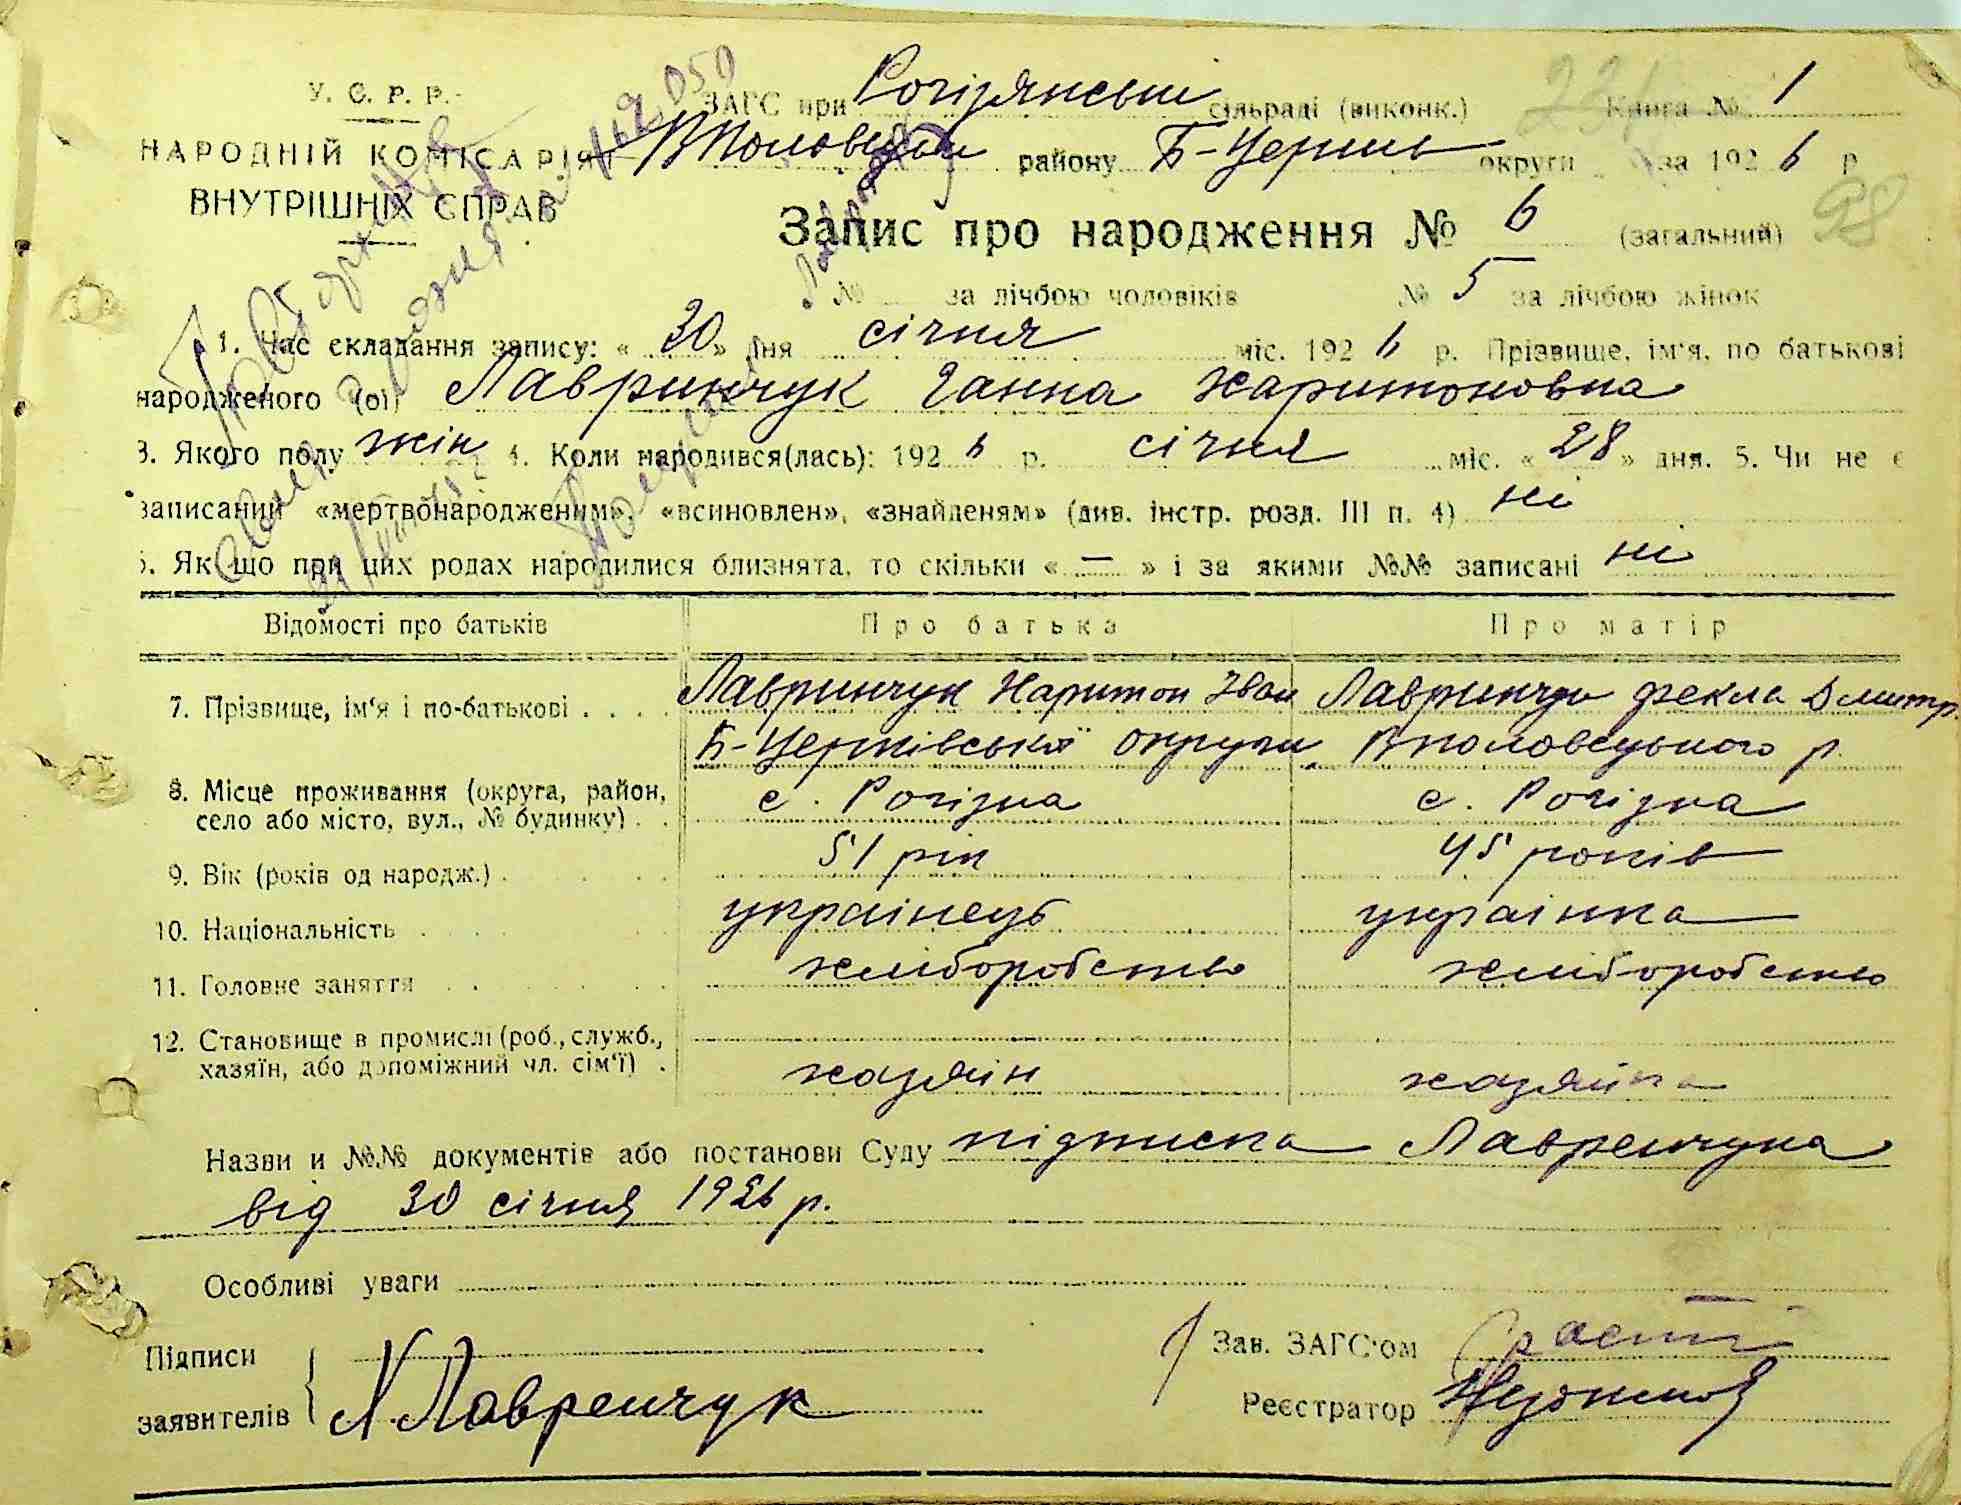 У. С. Р. Р.
НАРОДНІЙ КОМІСАРІЯТ
ВНУТРІШНІХ СПРАВ
ЗАГС при Рогізянській сільраді (виконк.) Книга № 1
В Половецьк району Б-Церкв округи за 1926 р
Запис про народження № 6 (загальний) 98
№ за лічбою чоловіків № 5 за лічбою жінок
1. Час складання запису: « 30 » дня січня міс. 1926 р. Прізвище, ім'я, по батькові
народженого (ої) Лавринчук Ганна Харитоновна
3. Якого полу жін 4. Коли народився(лась): 1926 р. січня міс. « 28 » дня. 5. Чи не є
записаний «мертвонародженим», «всиновлен», «знайденям» (див. інстр. розд. III п. 4) ні
6. Як що при цих родах народилися близнята, то скільки « — » і за якими №№ записані ні
Відомості про батьків Про батька Про матір
7. Прізвище, ім'я і по-батькові . . . . Лавринчук Харитон Іван Лавринчук Фекла Дмитр.
Б-Церківської округи Вполовецького р.
8. Місце проживання (округа, район, село або місто, вул., № будинку) . . с. Рогізна с. Рогізна
9. Вік (років од народж.) . 51 рік 45 років
10. Національність українець українка
11. Головне заняття хліборобство хліборобство
12. Становище в промислі (роб., служб., хазяїн, або допоміжний чл. сім'ї) . хазяін хазяйка
Назви и №№ документів або постанови Суду підписка Лавренчука
від 30 січня 1926 р.
Особливі уваги
Підписи
заявителів Х Лавренчук
Зав. ЗАГС'ом
Реєстратор